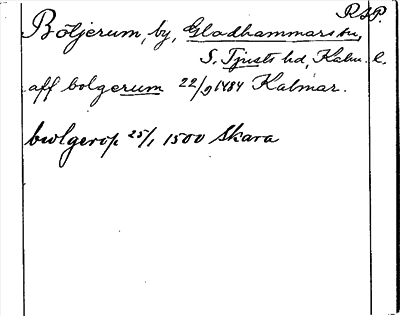 RSP.
Böljerum, by, Gladhammars sn,
S. Tjusts hd, Kalm. l.
aff bolgerum 22/9 1484 Kalmar.
bwlgerop 25/1 1500 Skara